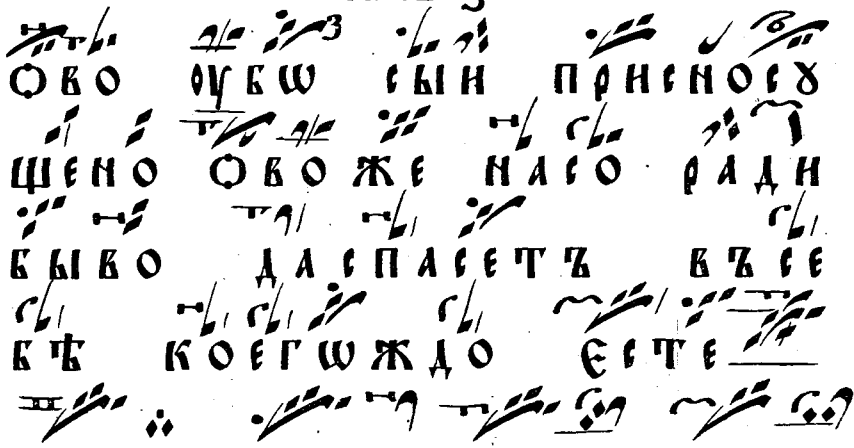 ѻво ѹбѡ сыи присносꙋ
щено ѻвоже насо ради
быво даспасетъ въсе
бѣ коегѡждо єсте